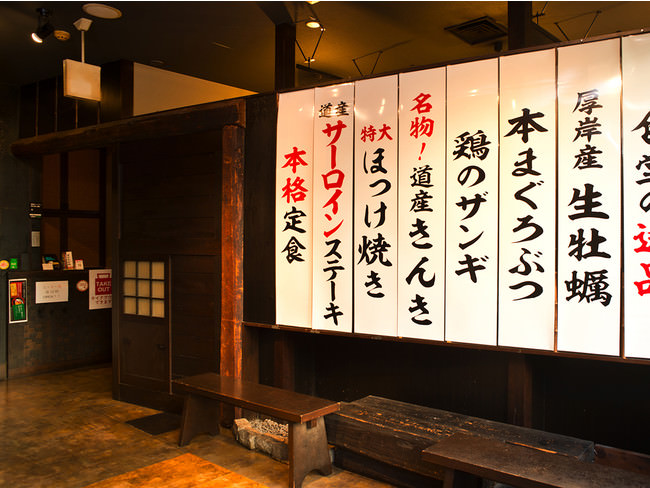 食堂の逸品
厚岸産 生牡蠣
本まぐろぶつ
鶏のザンギ
名物！道産きんき
特大ほっけ焼き
道産サーロインステーキ
本格定食
TAKE OUT